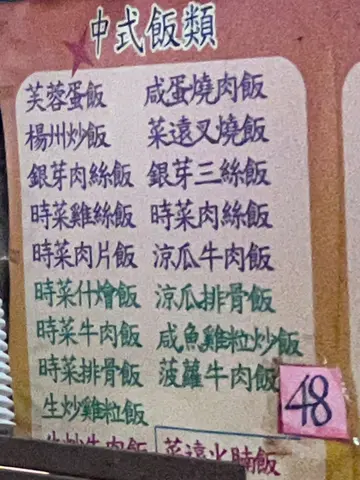 中式飯類
芙蓉蛋飯 咸蛋燒肉飯
楊州炒飯 菜遠叉燒飯
銀芽肉絲飯 銀芽三絲飯
時菜雞絲飯 時菜肉絲飯
時菜肉片飯 涼瓜牛肉飯
時菜什燴飯 涼瓜排骨飯
時菜牛肉飯 咸魚雞粒炒飯
時菜排骨飯 菠蘿牛肉飯
生炒雞粒飯 48
生炒牛肉飯 菜遠火腩飯